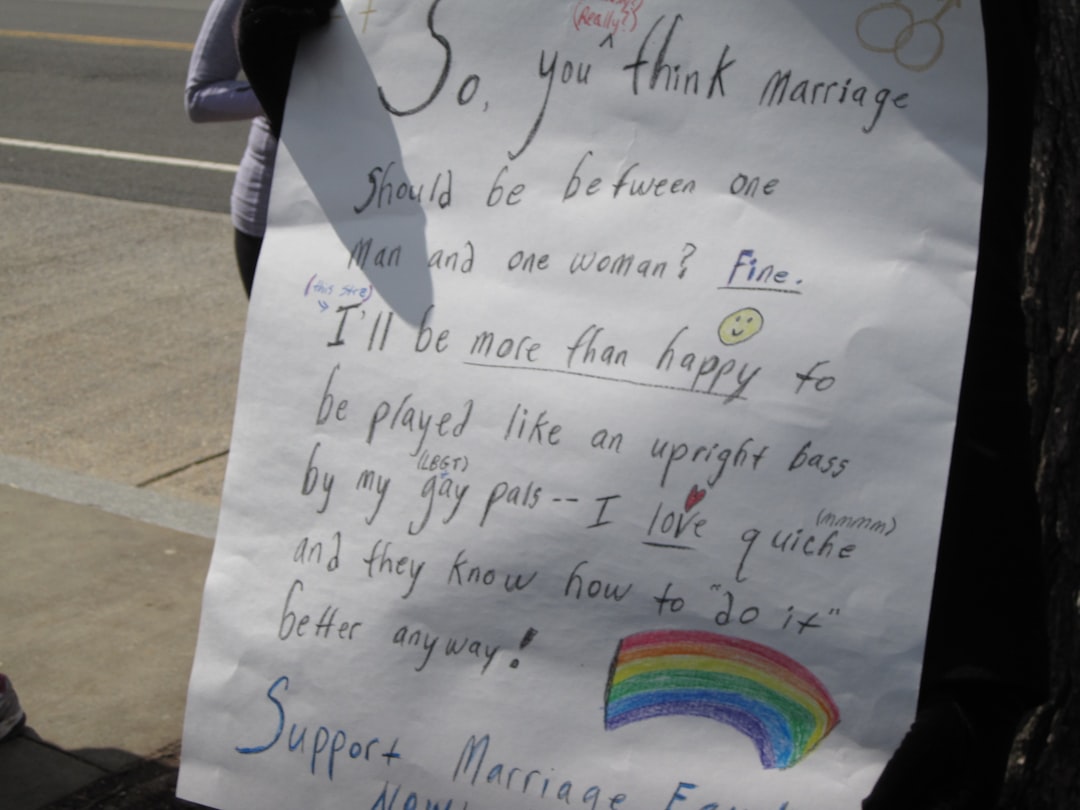 (Really?)
So, you ^ think marriage
should be between one
man and one woman? Fine.
(this str8)
I'll be more than happy to
be played like an upright bass
(LBGT)
by my gay pals -- I love quiche
(mmmm)
and they know how to "do it"
better anyway!
Support Marriage
Now!